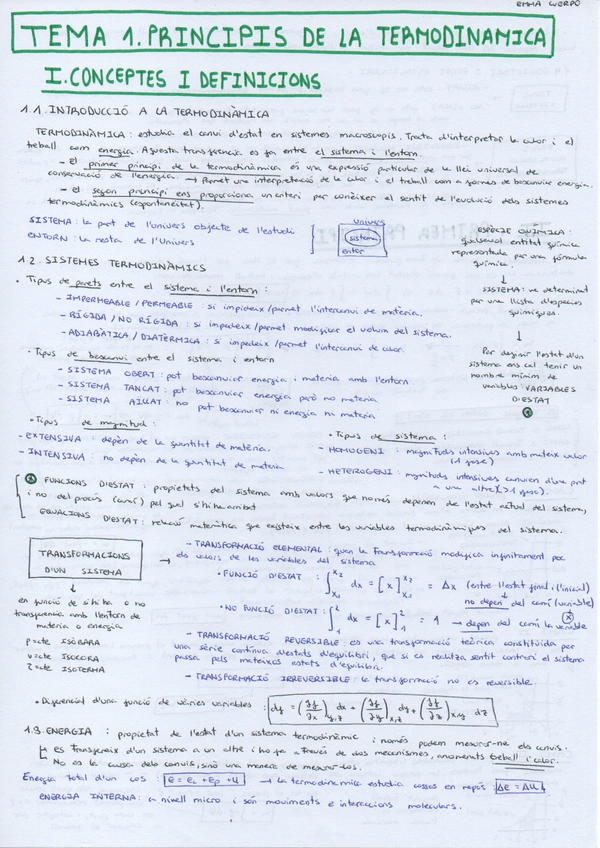 EMMA CUERPO
TEMA 1. PRINCIPIS DE LA TERMODINAMICA
I. CONCEPTES I DEFINICIONS
1.1. INTRODUCCIÓ A LA TERMODINÀMICA
TERMODINÀMICA: estudia el canvi d'estat en sistemes macroscopis. Tracta d'interpretar la calor i el
treball com energia. Aquesta transferencia es fa entre el sistema i l'entorn.
- El primer principi de la termodinàmica és una expressió particular de la llei universal de
conservació de l'energia. → Permet una interpretació de la calor i el treball com a formes de bescanviar energia.
- el segon principi ens proporciona un criteri per conèixer el sentit de l'evolució dels sistemes
termodinàmics (espontaneïtat).
SISTEMA: la part de l'Univers objecte de l'estudi
ENTORN: la resta de l'Univers
univers
sistema
entorn
ESPÈCIE QUÍMICA:
qualsevol entitat química
representada per una fórmula
química.
↓
SISTEMA: ve determinat
per una llista d'espècies
químiques.
↓
Per definir l'estat d'un
sistema ens cal tenir un
nombre mínim de
variables: VARIABLES
D'ESTAT
1.2. SISTEMES TERMODINÀMICS
• Tipus de parets entre el sistema i l'entorn:
- IMPERMEABLE / PERMEABLE: si impideix/permet l'intercanvi de matèria.
- RÍGIDA / NO RÍGIDA: si impedeix/permet modificar el volum del sistema.
- ADIABÀTICA / DIATÈRMICA: si impedeix/permet l'intercanvi de calor.
• Tipus de bescanvi entre el sistema i entorn
- SISTEMA OBERT: pot bescanviar energia i materia amb l'entorn
- SISTEMA TANCAT: pot bescanviar energia però no matèria
- SISTEMA AÏLLAT: no pot bescanviar ni energia ni matèria
• Tipus de magnitud:
- EXTENSIVA: depèn de la quantitat de matèria.
- INTENSIVA: no depèn de la quantitat de matèria
• Tipus de sistema:
- HOMOGENI: magnituds intensives amb mateix valor
(1 fase)
- HETEROGENI: magnituds intensives canvien d'una part
a una altre (>1 fase).
FUNCIONS D'ESTAT: propietats del sistema amb valors que només depenen de l'estat actual del sistema,
i no del procés (camí) pel qual s'hi ha arribat
EQUACIONS D'ESTAT: relació matemàtica que existeix entre les variables termodinàmiques del sistema.
TRANSFORMACIONS
D'UN SISTEMA
↓
en funció de si hi ha o no
transferencia amb l'entorn de
matèria o energia
p=cte ISÒBARA
v=cte ISOCORA
T=cte ISOTERMA
- TRANSFORMACIÓ ELEMENTAL: quan la transformació modifica infinitament poc
els valors de les variables del sistema
• FUNCIÓ D'ESTAT: ∫ₓ₁ˣ² dx = [x]ₓ₁ˣ² = Δx (entre l'estat final i l'inicial)
no depèn del camí (variable)
• NO FUNCIÓ D'ESTAT: ∫₁² dx = [x]₁² = 1 → depèn del camí la variable
x
- TRANSFORMACIÓ REVERSIBLE: es una transformació teòrica constituida per
una sèrie contínua d'estats d'equilibri, que si es realitza sentit contrari el sistema
passa pels mateixos estats d'equilibri.
- TRANSFORMACIÓ IRREVERSIBLE: la transformació no es reversible.
• Diferencial d'una funció de vàries variables: df = (∂f/∂x)y,z dx + (∂f/∂y)x,z dy + (∂f/∂z)x,y dz
1.3. ENERGIA: propietat de l'estat d'un sistema termodinàmic i només podem mesurar-ne els canvis.
Es transfereix d'un sistema a un altre i ho fa a través de dos mecanismes, anomenats treball i calor.
No es la causa dels canvis, sinó una manera de mesurar-los.
Energia total d'un cos: e = ec + ep + u → la termodinamica estudia cossos en repòs: Δe = Δu
ENERGIA INTERNA: a nivell micro i són moviments e interaccions moleculars.